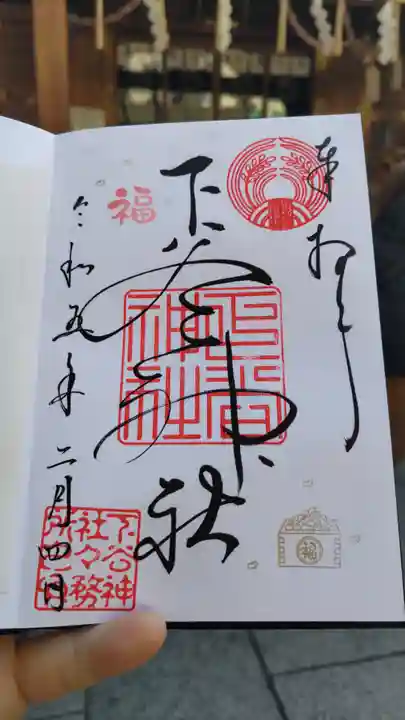 奉拝
下谷神社
下谷
神社
福
令和五年二月四日
下谷神
社々務
所之印
福